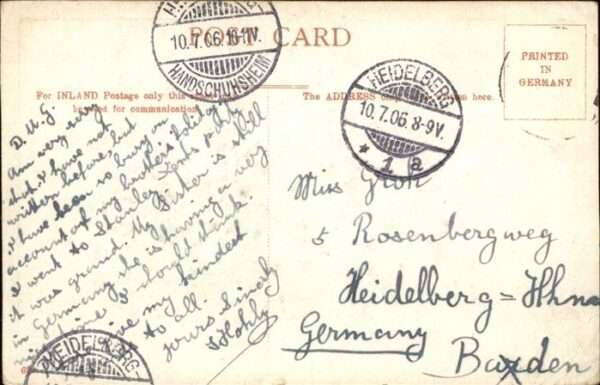 HANDSCHUHSHEIM
10.7.06.10-11V.
POST CARD
HEIDELBERG
10.7.06 8-9V.
* 1 a
PRINTED
IN
GERMANY
For INLAND Postage only this
be used for communication.
The ADDRESS only here.
D. M. G.
Am very sorry
that I have not
written before, but
I have been so busy on
account of my brother's holiday
I went to Stanley party
it was grand. My Sister is still
in Germany she is having a very
nice time I should think.
Give my kindest
to all.
yours Sincely
Miss Groh
5 Rosenbergweg
Heidelberg=Hhna
Germany
Baden
HEIDELBERG